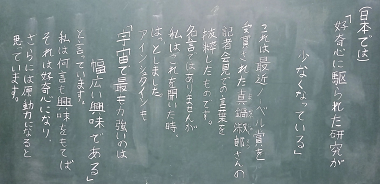 (日本では)
「好奇心に駆られた研究が
少なくなっている」
これは最近ノーベル賞を
受賞された真鍋淑郎さんの
記者会見での言葉を
抜粋したものです。
名言ではありませんが
私はこれを聞いた時、
はっとしました
アインシュタインも
「宇宙で最も力強いのは
幅広い興味である」
と言っています。
私は何言も興味をもてば
それは好奇心になり、
さらには原動力になると
思っています。